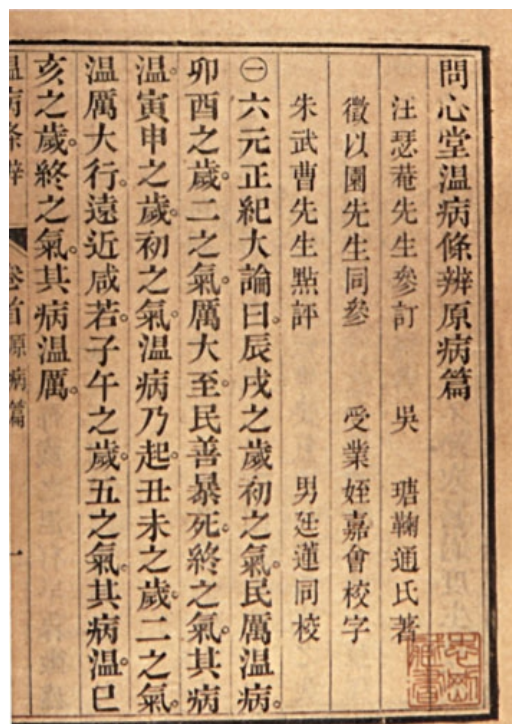 問心堂溫病條辨原病篇
汪瑟菴先生參訂 吳 瑭鞠通氏著
徵以園先生同參 受業姪嘉會校字
朱武曹先生點評 男廷蓮同校
㊀六元正紀大論曰。辰戌之歲初之氣。民厲溫病。
卯酉之歲。二之氣。厲大至。民善暴死。終之氣。其病
溫。寅申之歲。初之氣。溫病乃起。丑未之歲。二之氣。
溫厲大行。遠近咸若。子午之歲。五之氣。其病溫。巳
亥之歲。終之氣。其病溫厲。
溫病條辨 卷首 原病篇 一